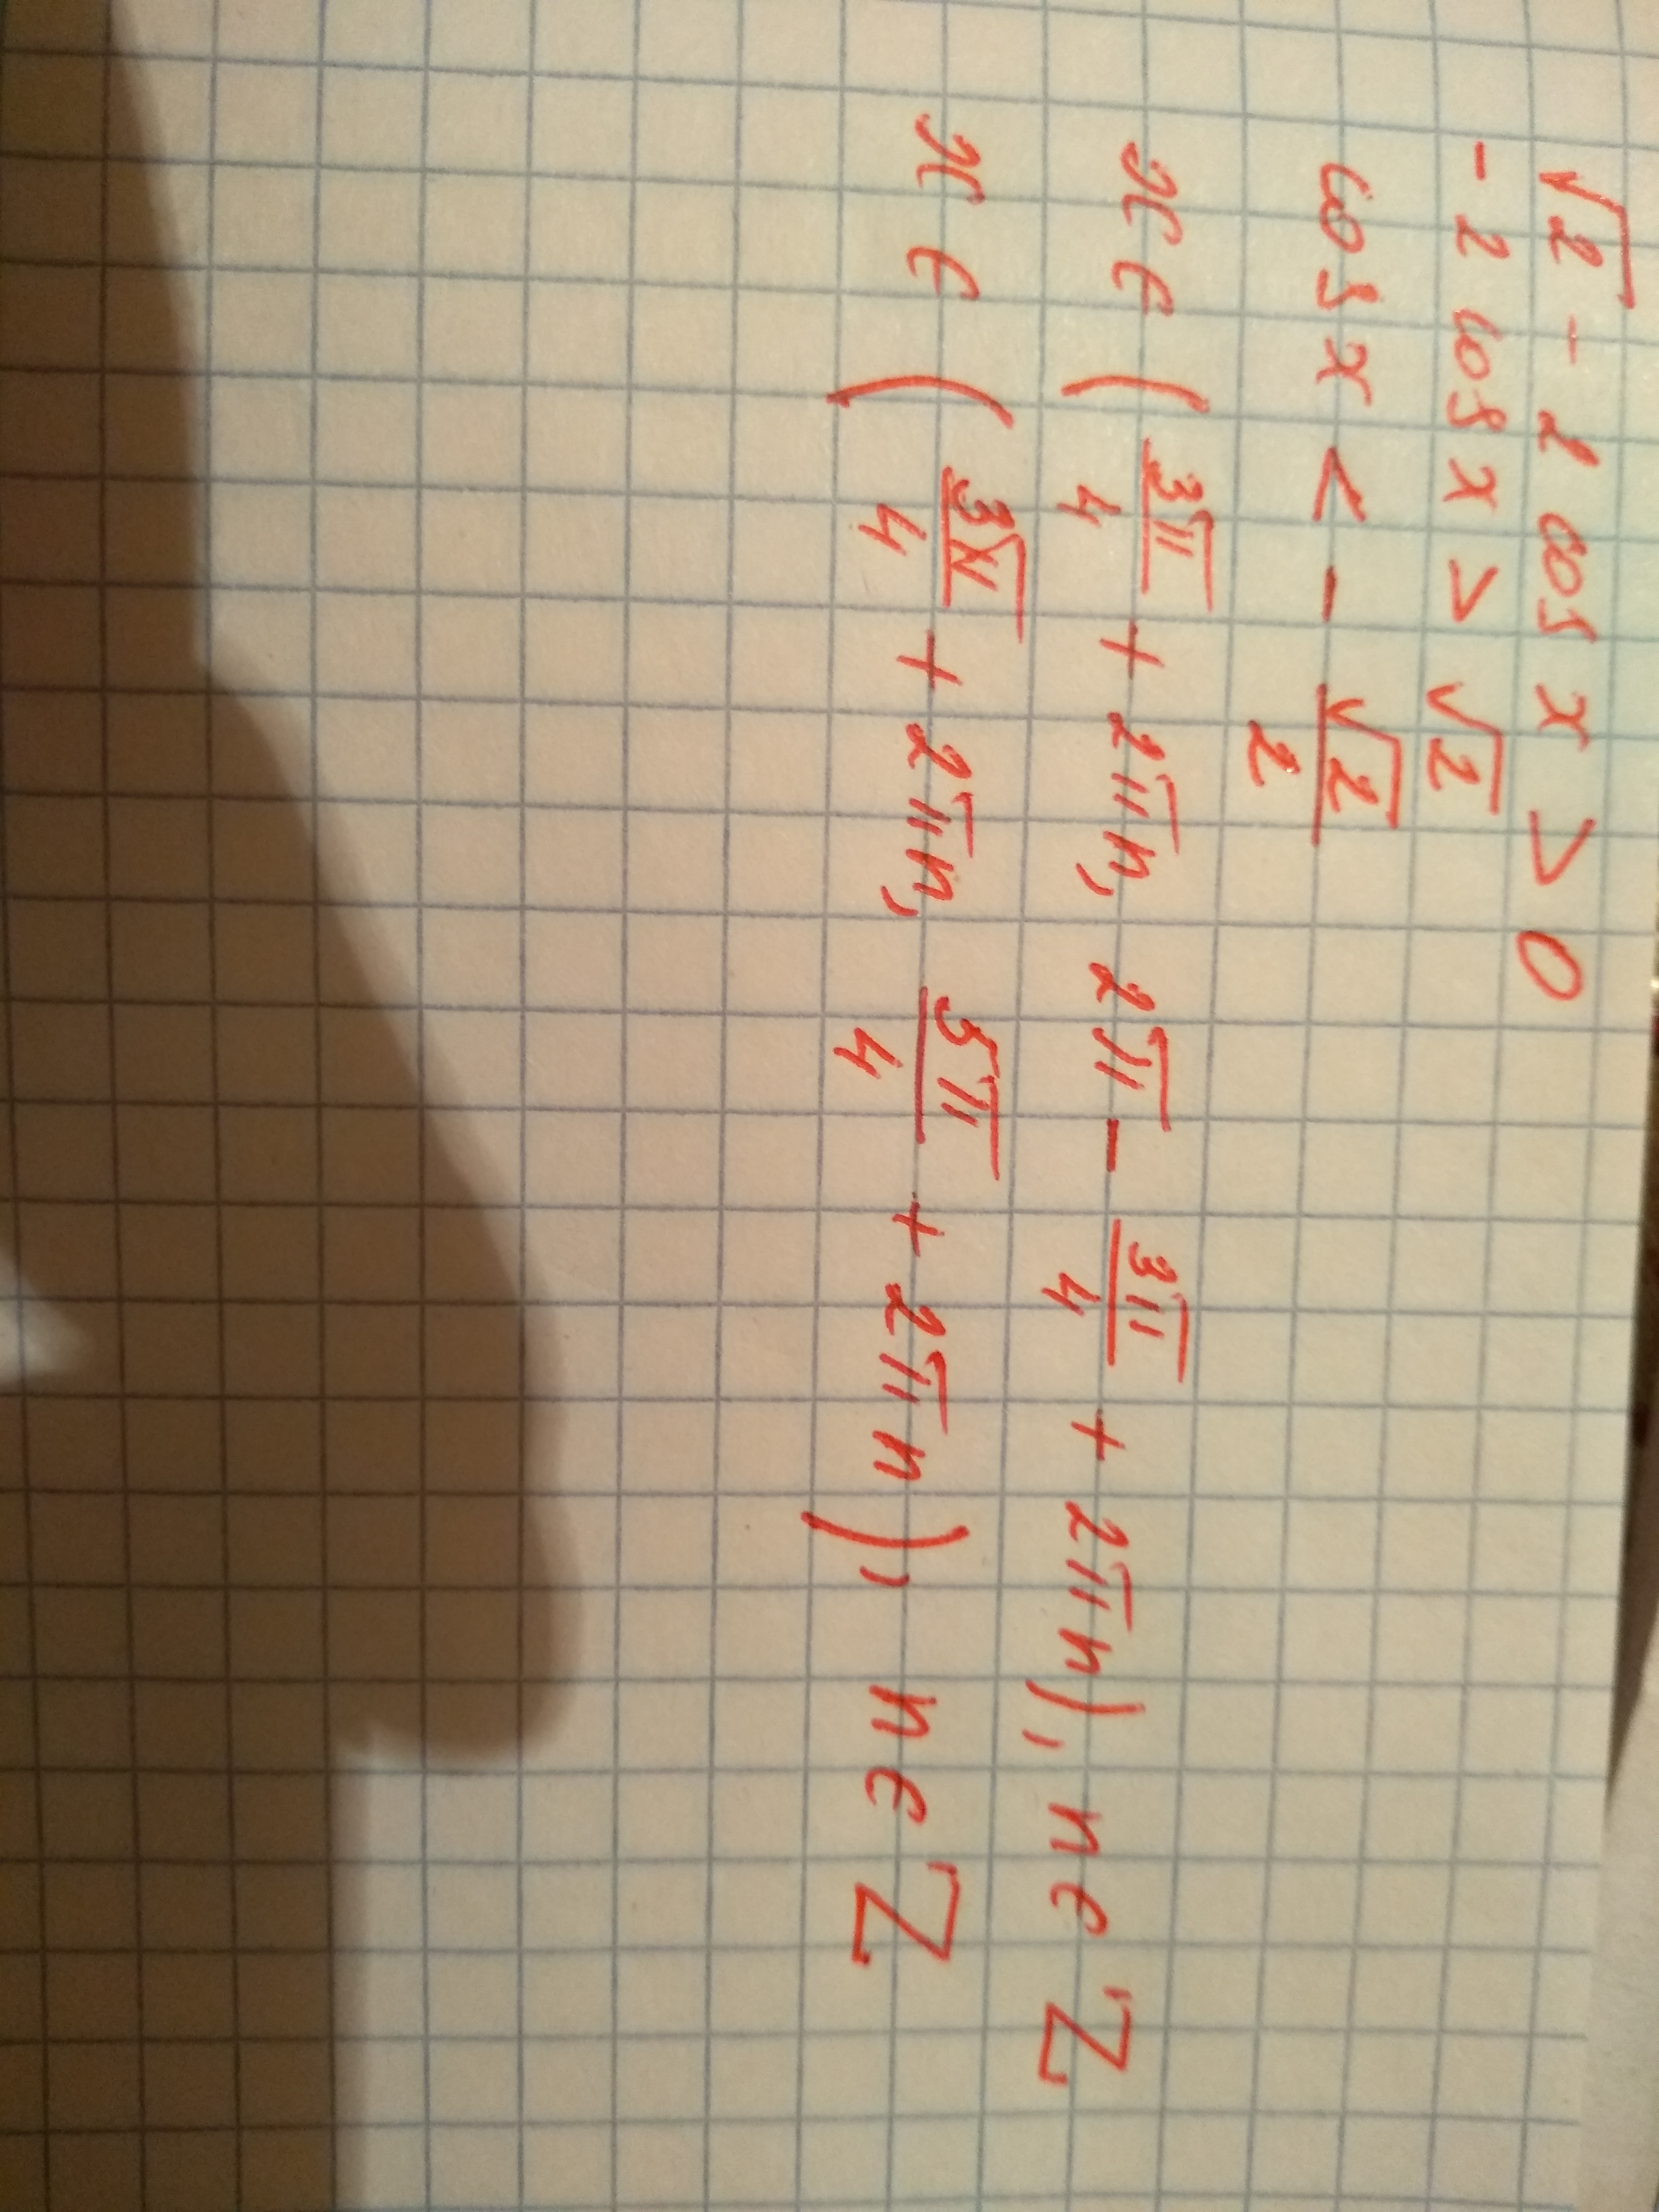 √2 - 2 cos x > 0
- 2 cos x > √2
cos x < - √2/2
x ∈ (3π/4 + 2πn, 2π - 3π/4 + 2πn), n ∈ Z
x ∈ (3π/4 + 2πn, 5π/4 + 2πn), n ∈ Z